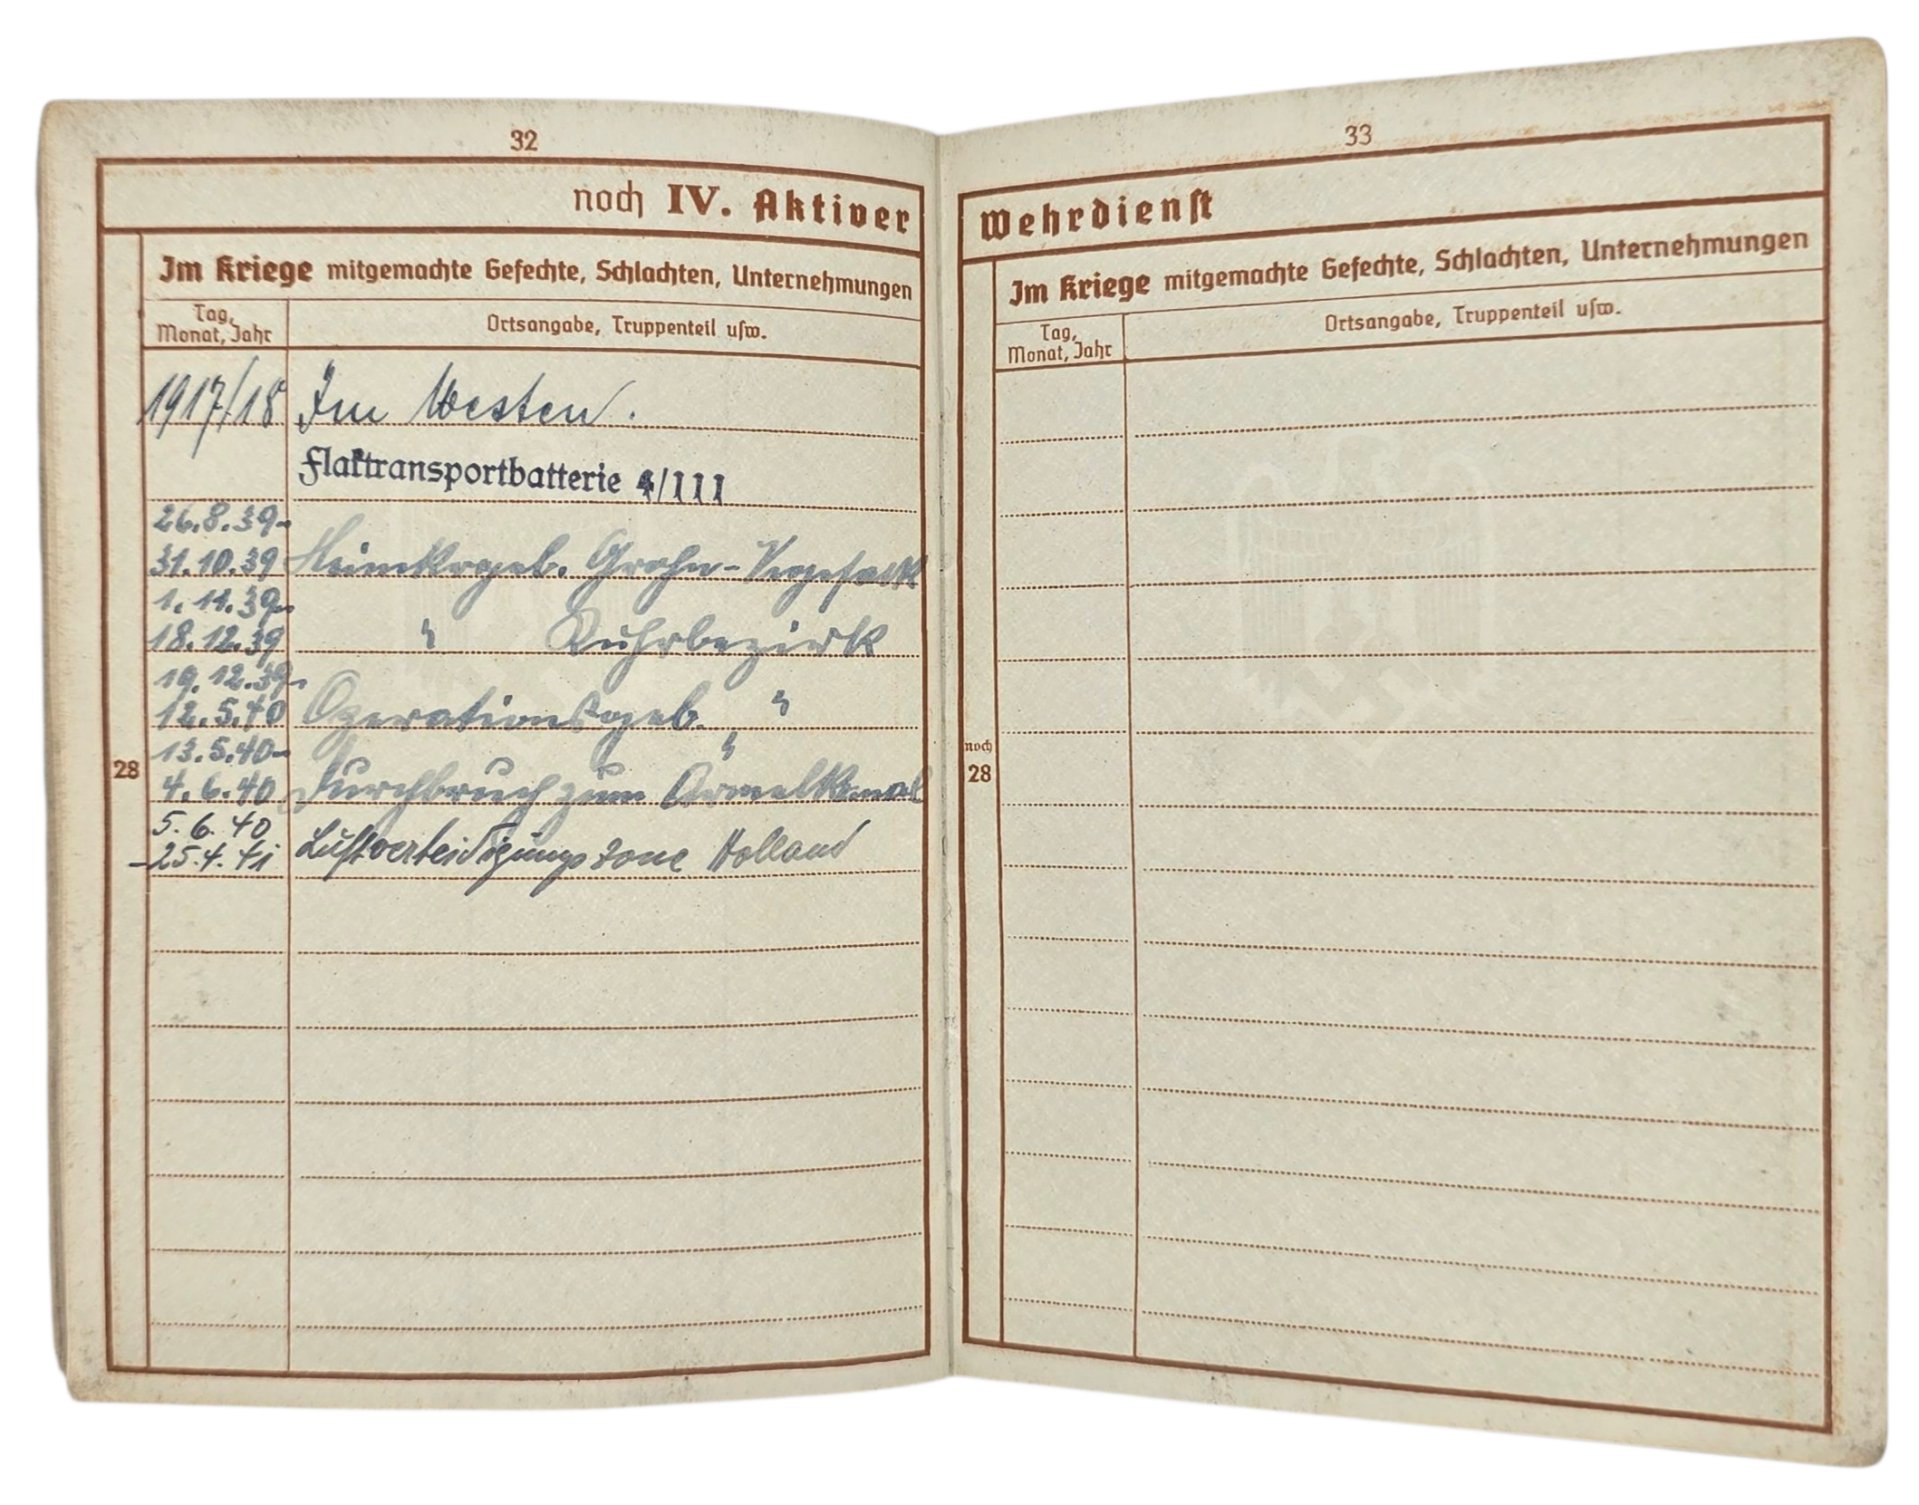 32
noch IV. Aktiver
Im Kriege mitgemachte Gefechte, Schlachten, Unternehmungen
Tag,
Monat, Jahr
Ortsangabe, Truppenteil usw.
1917/18 Im Westen.
Flaktransportbatterie 4/III
26.8.39-
31.10.39 Heimkrgeb. Grohn-Vegesack
1.11.39-
18.12.39 " Ruhrbezirk
19.12.39-
12.5.40 Operationsgeb. "
13.5.40- "
28
4.6.40 Durchbruch zum Ärmelkanal
5.6.40
-25.4.41 Luftverteidigungszone Holland
33
Wehrdienst
Im Kriege mitgemachte Gefechte, Schlachten, Unternehmungen
Tag,
Monat, Jahr
Ortsangabe, Truppenteil usw.
noch
28